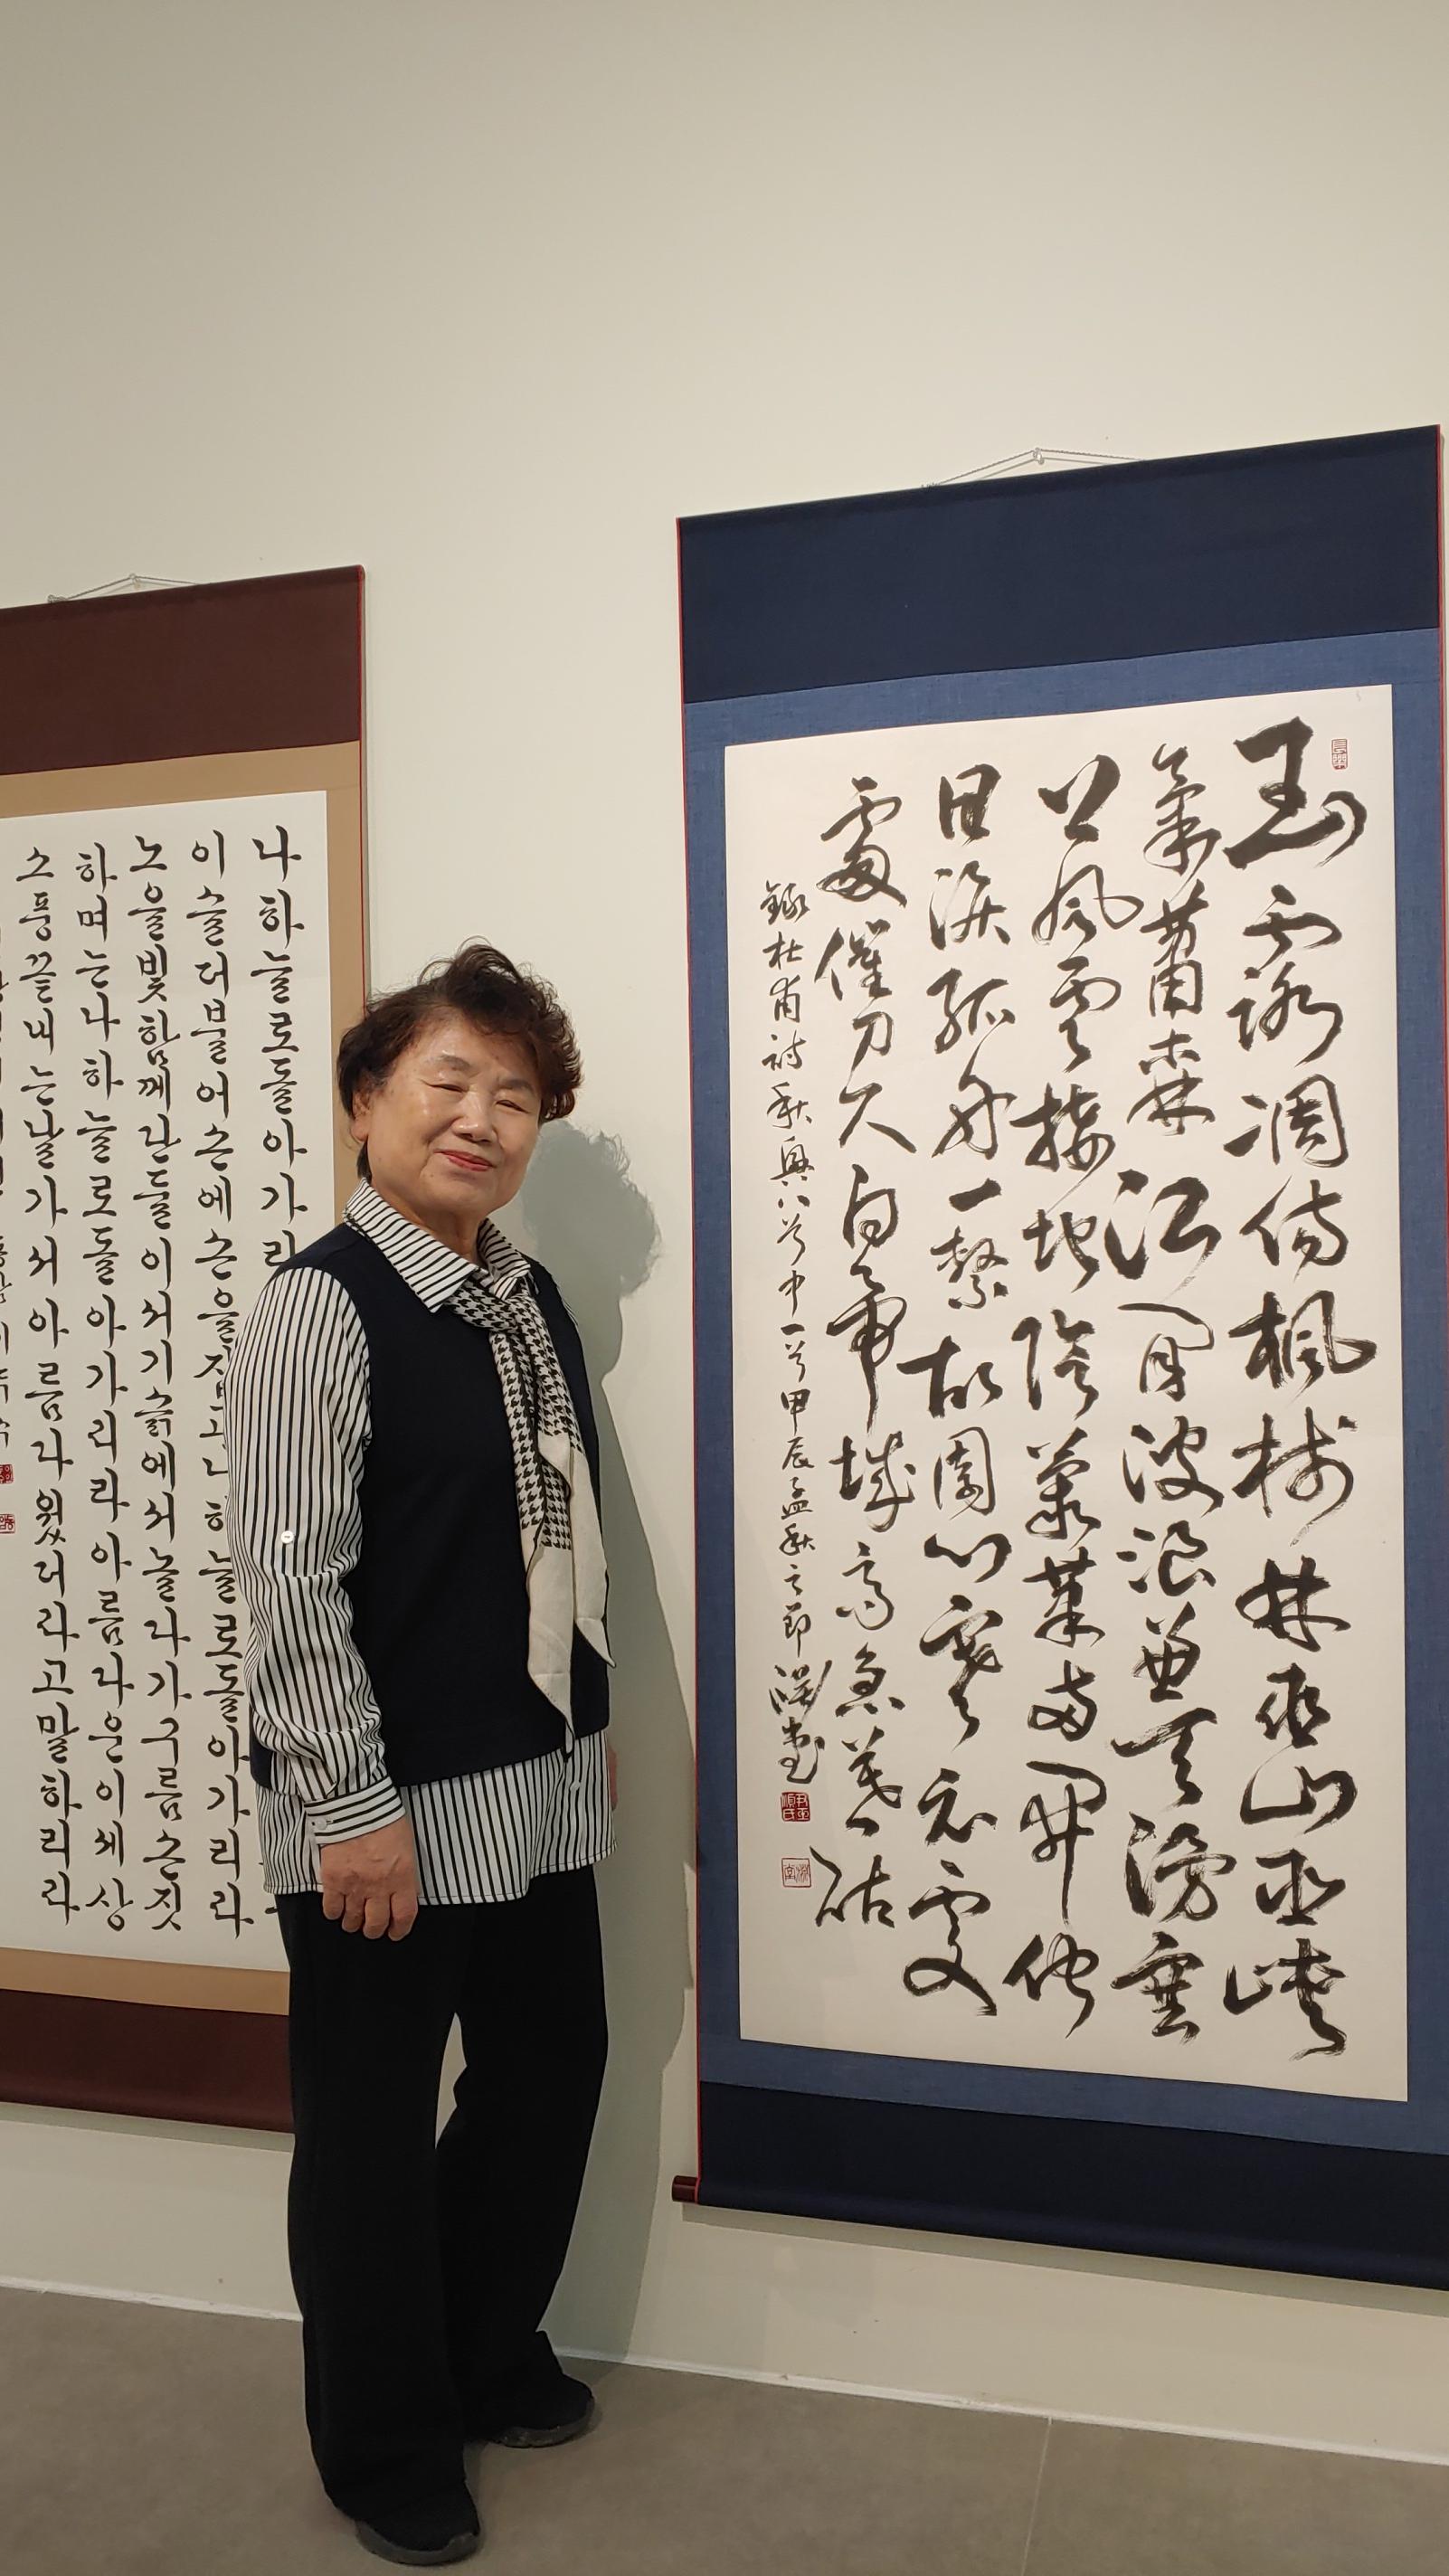 玉露凋傷楓樹林巫山巫峽
氣蕭森江間波浪兼天湧塞
上風雲接地陰叢菊兩開他
日淚孤舟一繫故園心寒衣處
處催刀尺白帝城高急暮砧
錄杜甫詩秋興八首中一首甲辰孟秋之節
나하늘로돌아가리
이슬더불어손에손을잡고나하늘로돌아가리라
노을빛함께단둘이서기슭에서놀다가구름손짓
하며는나하늘로돌아가리라아름다운이세상
소풍끝내는날가서아름다웠더라고말하리라